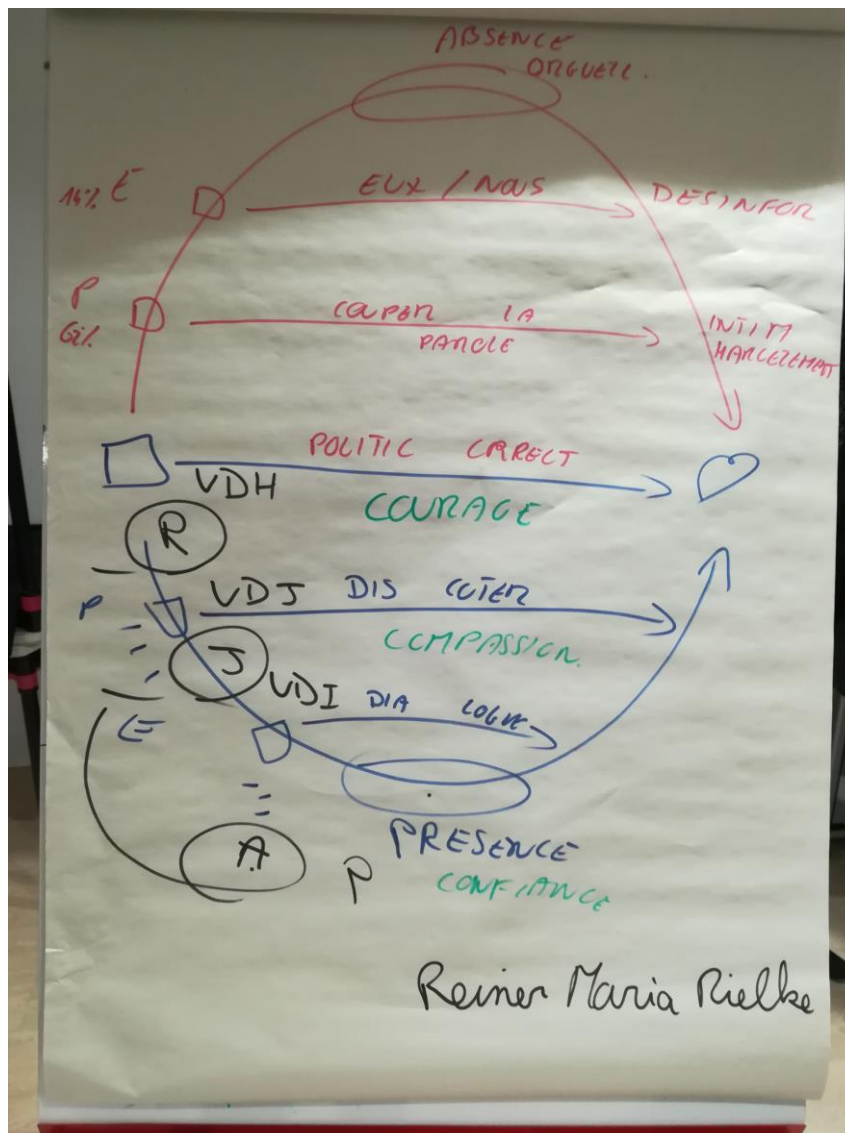 ABSENCE
ORGUEIL.
E
EUX / NOUS
DESINFOR
P
COUPER LA
PAROLE
INTIM
HARCELEMENT
POLITIC CORRECT
VDH
COURAGE
R
P
VDJ DIS CUTER
COMPASSION.
J
VDI DIA LOGUE
E
A
PRESENCE
P
CONFIANCE
Reiner Maria Rielke